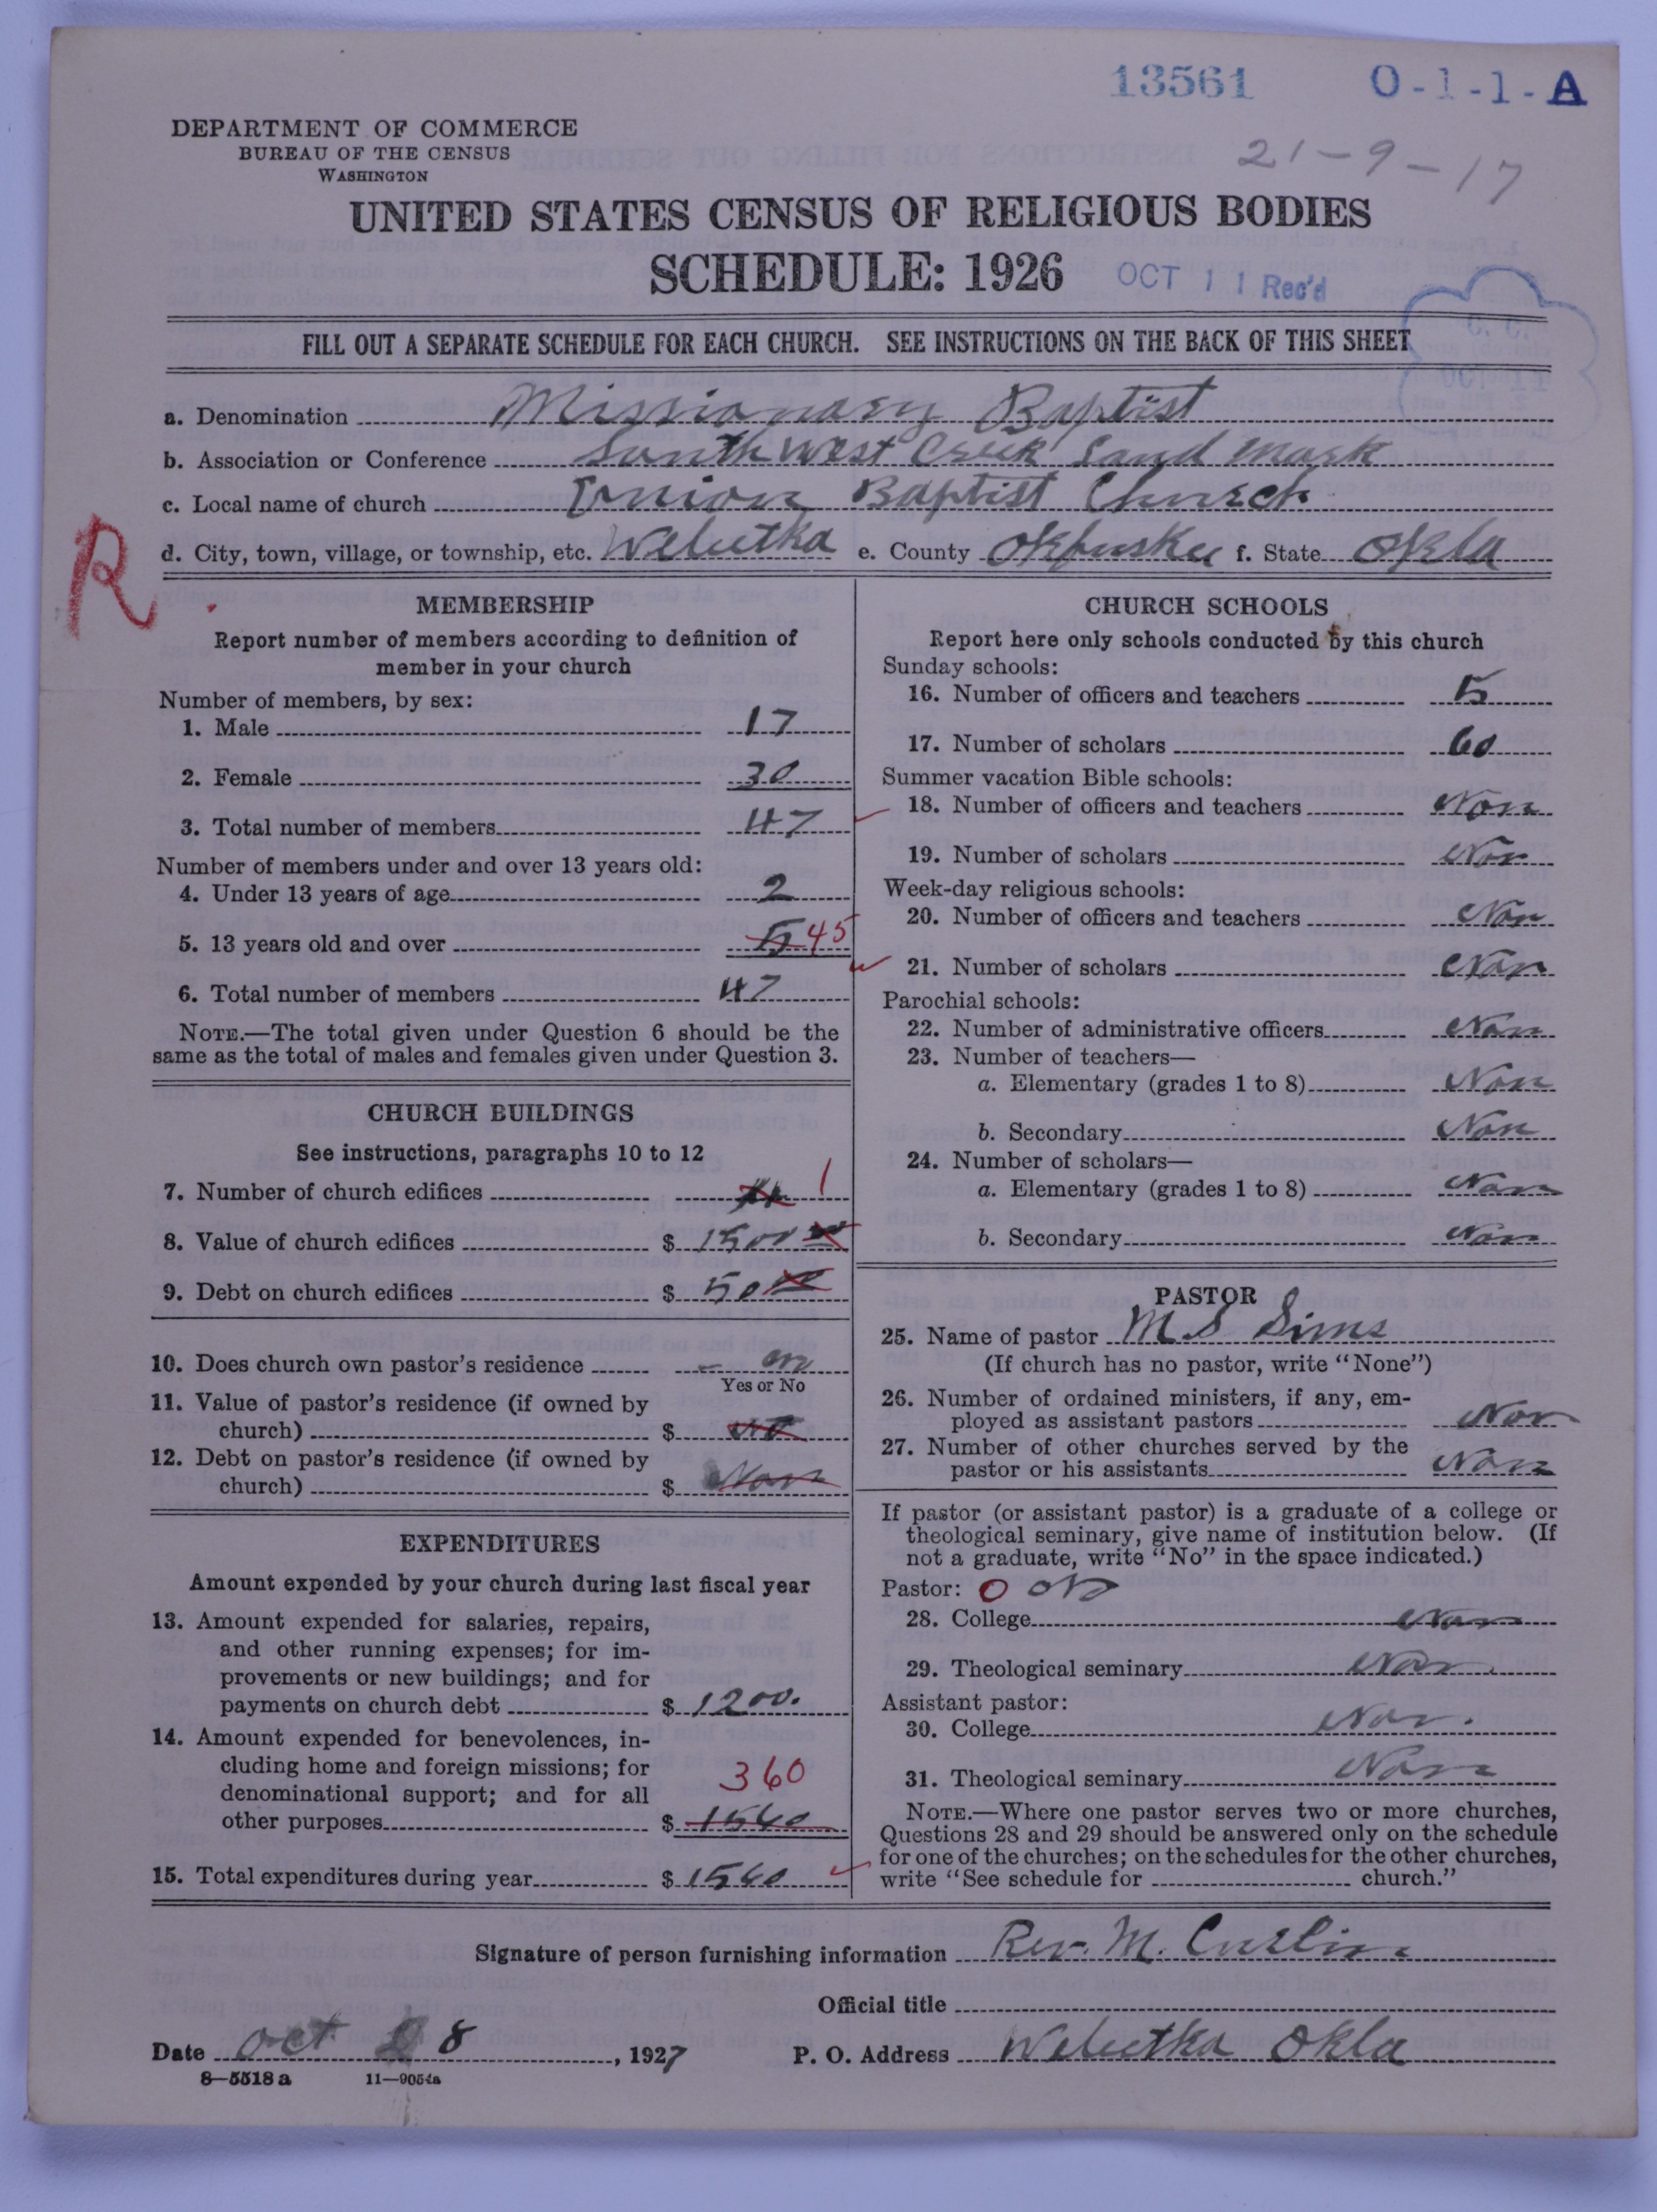 13561 O-1-1-A
DEPARTMENT OF COMMERCE
BUREAU OF THE CENSUS
WASHINGTON
21-9-17
UNITED STATES CENSUS OF RELIGIOUS BODIES
SCHEDULE: 1926 OCT 11 Rec'd
FILL OUT A SEPARATE SCHEDULE FOR EACH CHURCH. SEE INSTRUCTIONS ON THE BACK OF THIS SHEET
C. C.
OCT 11
a. Denomination Missionary Baptist
b. Association or Conference South West Creek Land Mark
c. Local name of church Union Baptist Church
d. City, town, village, or township, etc. Weleetka e. County Okfuskee f. State Okla
R
MEMBERSHIP
Report number of members according to definition of
member in your church
Number of members, by sex:
1. Male 17
2. Female 30
3. Total number of members 47
Number of members under and over 13 years old:
4. Under 13 years of age 2
5. 13 years old and over 5 45
6. Total number of members 47
NOTE.—The total given under Question 6 should be the
same as the total of males and females given under Question 3.
CHURCH BUILDINGS
See instructions, paragraphs 10 to 12
7. Number of church edifices 1
8. Value of church edifices $ 1500 00
9. Debt on church edifices $ 50 00
10. Does church own pastor's residence
Yes or No
11. Value of pastor's residence (if owned by
church) $ No
12. Debt on pastor's residence (if owned by
church) $ Non
EXPENDITURES
Amount expended by your church during last fiscal year
13. Amount expended for salaries, repairs,
and other running expenses; for im-
provements or new buildings; and for
payments on church debt $ 1200.
14. Amount expended for benevolences, in-
cluding home and foreign missions; for
denominational support; and for all 360
other purposes $ 1560
15. Total expenditures during year $ 1560
CHURCH SCHOOLS
Report here only schools conducted by this church
Sunday schools:
16. Number of officers and teachers 5
17. Number of scholars 60
Summer vacation Bible schools:
18. Number of officers and teachers Non
19. Number of scholars Non
Week-day religious schools:
20. Number of officers and teachers Non
21. Number of scholars Non
Parochial schools:
22. Number of administrative officers Non
23. Number of teachers—
a. Elementary (grades 1 to 8) Non
b. Secondary Non
24. Number of scholars—
a. Elementary (grades 1 to 8) Non
b. Secondary Non
PASTOR
25. Name of pastor M S Sims
(If church has no pastor, write "None")
26. Number of ordained ministers, if any, em-
ployed as assistant pastors Non
27. Number of other churches served by the
pastor or his assistants Non
If pastor (or assistant pastor) is a graduate of a college or
theological seminary, give name of institution below. (If
not a graduate, write "No" in the space indicated.)
Pastor: O No
28. College Non
29. Theological seminary Non
Assistant pastor:
30. College Non.
31. Theological seminary Non
NOTE.—Where one pastor serves two or more churches,
Questions 28 and 29 should be answered only on the schedule
for one of the churches; on the schedules for the other churches,
write "See schedule for church."
Signature of person furnishing information Rev. M. Curlin
Official title
Date Oct 8, 1927 P. O. Address Weleetka Okla
8—5518a 11—9054a